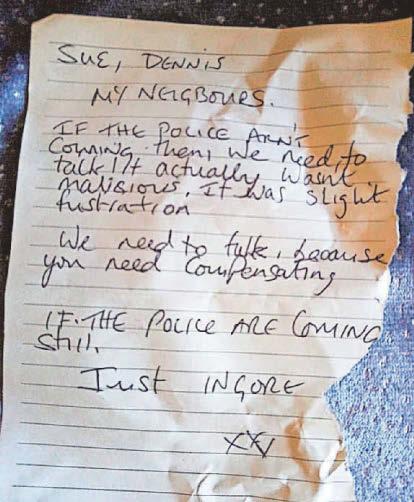 SUE, DENNIS
MY NEIGBOURS.
IF THE POLICE ARN'T
COMING then, we need to
talk! It actually wasn't
malisious. It was slight
fustration
We need to talk, because
you need compensating
IF THE POLICE ARE COMING
still,
Just INGORE
xxx